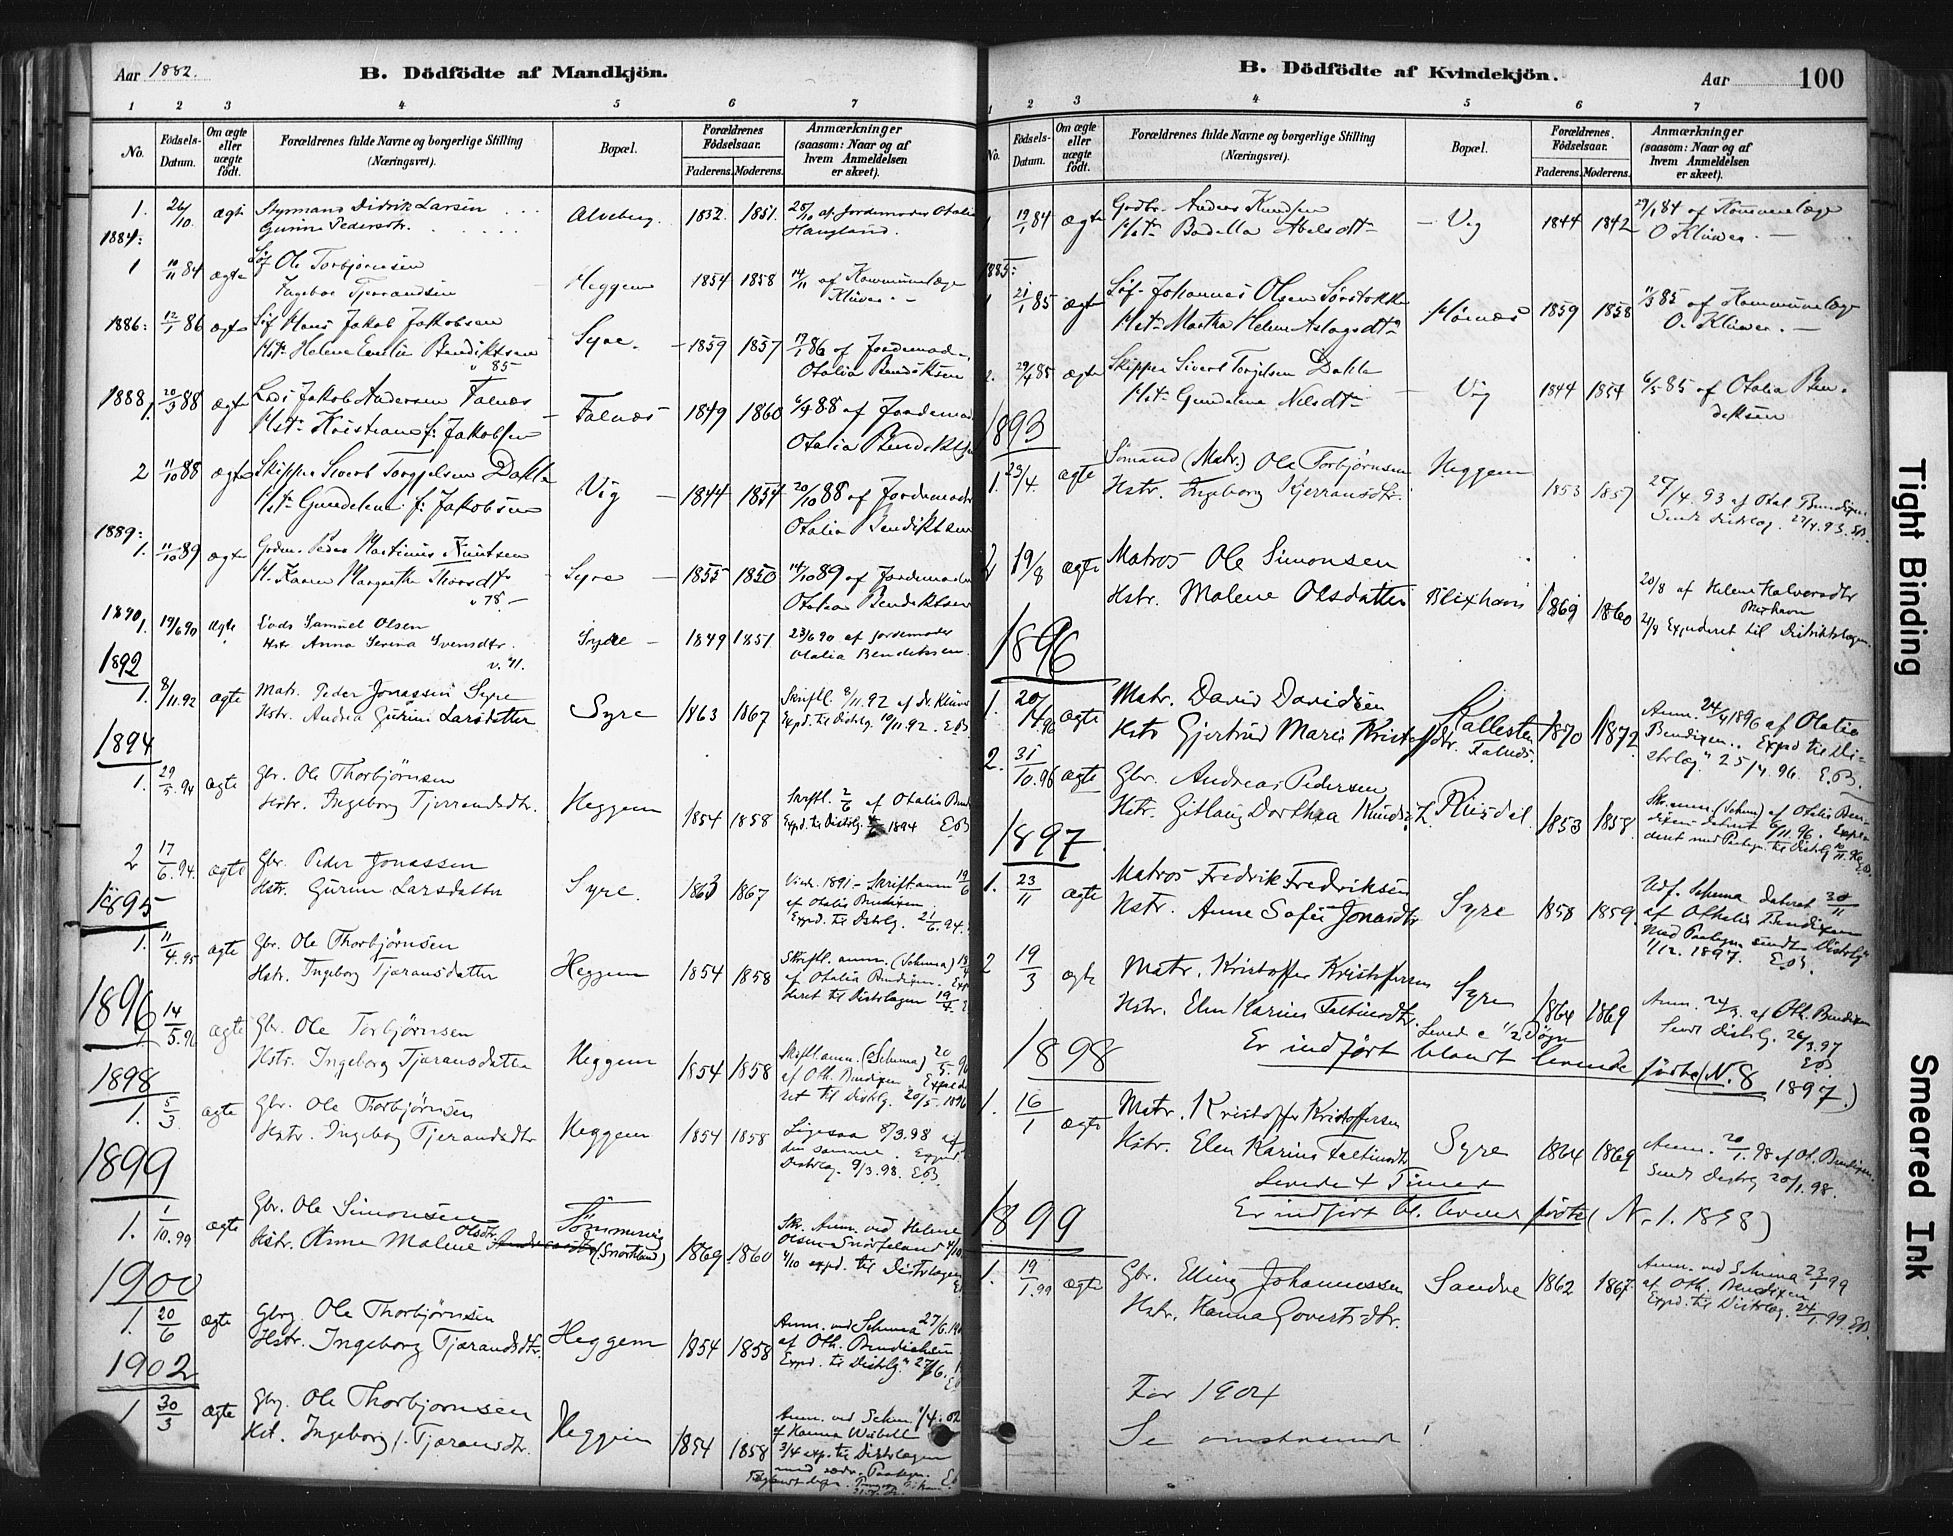 Aar 1882.
B. Dödfödte af Mandkjön.
1 2 3 4 5 6 7
No.
Födsels-Datum.
Om ægte eller uægte født.
Forældrenes fulde Navne og borgerlige Stilling (Næringsvei).
Bopæl.
Forældrenes Födselsaar.
Faderens. Moderens.
Anmærkninger (saasom: Naar og af hvem Anmeldelsen er skeet).
1. 26/10. ægte Styrmand Didrik Larsen Alveberg. 1832. 1851. 28/10 af Jordemoder Otalia
Gunne Pedersdtr. Haugland.
1884:
1 10/11 84 ægte Ole Torbjørnsen Heggem 1854 1858 14/11 af Kommunelæge
Tjerandsen Klüwer
1886: 12/1 86 ægte Hans Jakob Jakobsen Syre. 1859 1857 17/1 86 af Jordemod.
Helene Emilie Bendiktsen Otalia Bendiksen
" 85-
1888 1. 20/3 88 ægte Jakob Andersen Falnes Falnes 1849 1860 6/4 88 af Jordemod
Kristiane f: Jakobsen Otalia Bendiktsen
2 11/10 88 ægte Skipper Sivert Torgjelsen Dahle Vig 1844 1854 20/10 88 af Jordemoder
Gundelene f: Jakobsen Otalia Bendiktsen
1889:
1. 11/10 89 ægte Peder Martinius Knutsen Syre 1855 1850 14/10 89 af Jordemoder
Karen Margrethe Thorsdtr Otalia Bendiktsen
" 78-
1890 1. 19/6 90 ægte Samuel Olsen Syre 1849 1851 23/6 90 af Jordemoder
Hstr Anna Serina Svensdtr. Otalia Bendiksen.
1892
1. 8/11.92 ægte Matr. Peder Jonassen Syre Syre 1863 1867 Skriftl. 8/11.92 af Dr. Klüwer
Hstr. Andrea Gurine Larsdatter Expd. til Distrlg. 10/11.92. E.B.
1894
1. 29/5.94 ægte Gbr. Ole Thorbjörnsen Heggem 1854 1858 Skriftl. 2/6 af Otalia Bend
Hstr. Ingeborg Tjerrandsdtr. Expd. til Distrlg. 1894 E.B.
2 17/6.94. ægte Gbr. Peder Jonassen Syre. 1863 1867
Hstr. Gurine Larsdatter af Otalia Bendixen. Expd. til Distrlg. 21/6.94.
1895
1. 11/4.95 ægte Gbr. Ole Thorbjörnsen Heggem 1854 1858 Skriftl. anm. (Schema)
Hstr. Ingeborg Tjæransdatter af Otalia Bendixen.
til Distrlægen 19/4
1896
14/5.96 ægte Gbr. Ole Torbjørnsen Heggem 1854 1858 Skriftl. anm. (Schema) 20/5.96
Hstr. Ingeborg Tjæransdatter af Oth. Bendixen.
til Distrlg. 20/5. 1896
1898
1. 5/3 ægte Gbr. Ole Thorbjörnsen Heggem 1854 1858 Ligesaa 8/3.98 af
Hstr. Ingeborg Tjerandsdtr den samme. Expd.
Distrlæg. 9/3.98. E.B.
1899
1. 1/10.99 ægte Gbr. Ole Simonsen Tömmervig 1869. 1860 Skr. Anm. ved Helene
Hstr. Anne Malene Olsdtr. (Snörteland) Olsen Snörteland 4/10
4/10 expd. til Distrlægen
1900
1. 20/6 ægte Gbrg. Ole Thorbjörnsen Heggem 1854 1858 Anm. ved Schema 27/6.1900
Hstr. Ingeborg Tjærandsdtr. af Oth. Bendixen
Expd. til Distrlg. 27/6.
1902
1 30/3 ægte Gbrg. Ole Thorbjornsen Heggem 1854 1858 Anm. ved Schem. 1/4.02
Hst. Ingeborg f. Tjæransdtr. af Hanna
3/4 exp. til Distrlægen
B. Dödfödte af Kvindekjön.
Aar 100
1 2 3 4 5 6 7
No.
Födsels-Datum.
Om ægte eller uægte födt.
Forældrenes fulde Navne og borgerlige Stilling (Næringsvei).
Bopæl.
Forældrenes Födselsaar.
Faderens. Moderens.
Anmærkninger (saasom: Naar og af hvem Anmeldelsen er skeet).
1 19/1 84 ægte Gvdbr. Anders Knudsen Vig 1844 1842 29/1 84 af Kommunelæge
Bodella Abelsdtr O Klüwer.
1885:
1 21/1 85 ægte Johannes Olsen Sørstokke 1859 1858 11/3 85 af Kommunelæge
Martha Helene Aslagsdtr O. Klüwer.
2. 29/4 85 ægte Skipper Sivert Torjelsen Dahle Vig 1844 1854 6/5 85 af Otalia Ben-
Gundelene Nilsdtr diksen
1893
1. 23/4. ægte Sømand (Matr.) Ole Torbjørnsen Heggem 1853 1857 27/4. 93 af Otal. Bendixen
Hstr. Ingeborg Kjerransdtr. Sendt Distrlæg. 27/4.93. E.B.
2 19/8 ægte Matros Ole Simonsen Blixhavn 1869 1860 20/8 af Helene Halvorsdtr
Hstr. Malene Olsdatter Blixhavn
21/8 Expederet til Distriktslægen.
1896
1. 20/4.96 ægte Matr. David Davidsen Falnes. 1870 1872 Anm. 24/4 1896 af Otalia
Hstr Gjertrud Marie Kristoffsdtr. Bendixen. Expd til Di-
strlæg. 25/4.96. E.B.
2. 31/10.96 ægte Gbr. Andreas Pedersen 1853 1858 Skr. anm. (Schema) af Otalia Ben-
Hstr. Gitlaug Dorthea dixen dateret 6/11.96.
1897
1. 23/11 ægte Matros Fredrik Fredriksen Syre 1858 1859. Udf. Schema dateret 30/11
Hstr. Anne Sofie Jonasdtr af Othalia Bendixen
med Paategn. sendt Distrlg.
1/12. 1897. E.B.
2 19/3 ægte Matr. Kristoffer Kristoffersen Syre 1864 1869 Anm. 24/3. af Oth. Bendixen
Hstr. Elen Karine Feltinsdtr. Levede c 1/2 Døgn Sendt Distrlg. 26/3.97
E.B.
Er indført blandt levende fødte (N. 8 1897.)
1898
1. 16/1 ægte Matr. Kristoffer Kristoffersen Syre 1864 1869 Anm. 20/1.98 af Ot. Bendixen.
Hstr. Elen Karine Feltinsdtr Sendt Distrlg 20/1.98.
Levede 4 Timer
Er indført bl. levende fødte (N. 1. 1898)
1899
1. 19/1.99 ægte Gbr. Elling Johannessen Sandve 1862 1867. Anm. ved Schema 23/1 99
Hstr. Hanna Govertsdtr. af Oth. Bendixen
Expd. til Distrlæg. 24/1 99. E.B.
For 1904
Se omstaaende!
Tight Binding
Smeared Ink